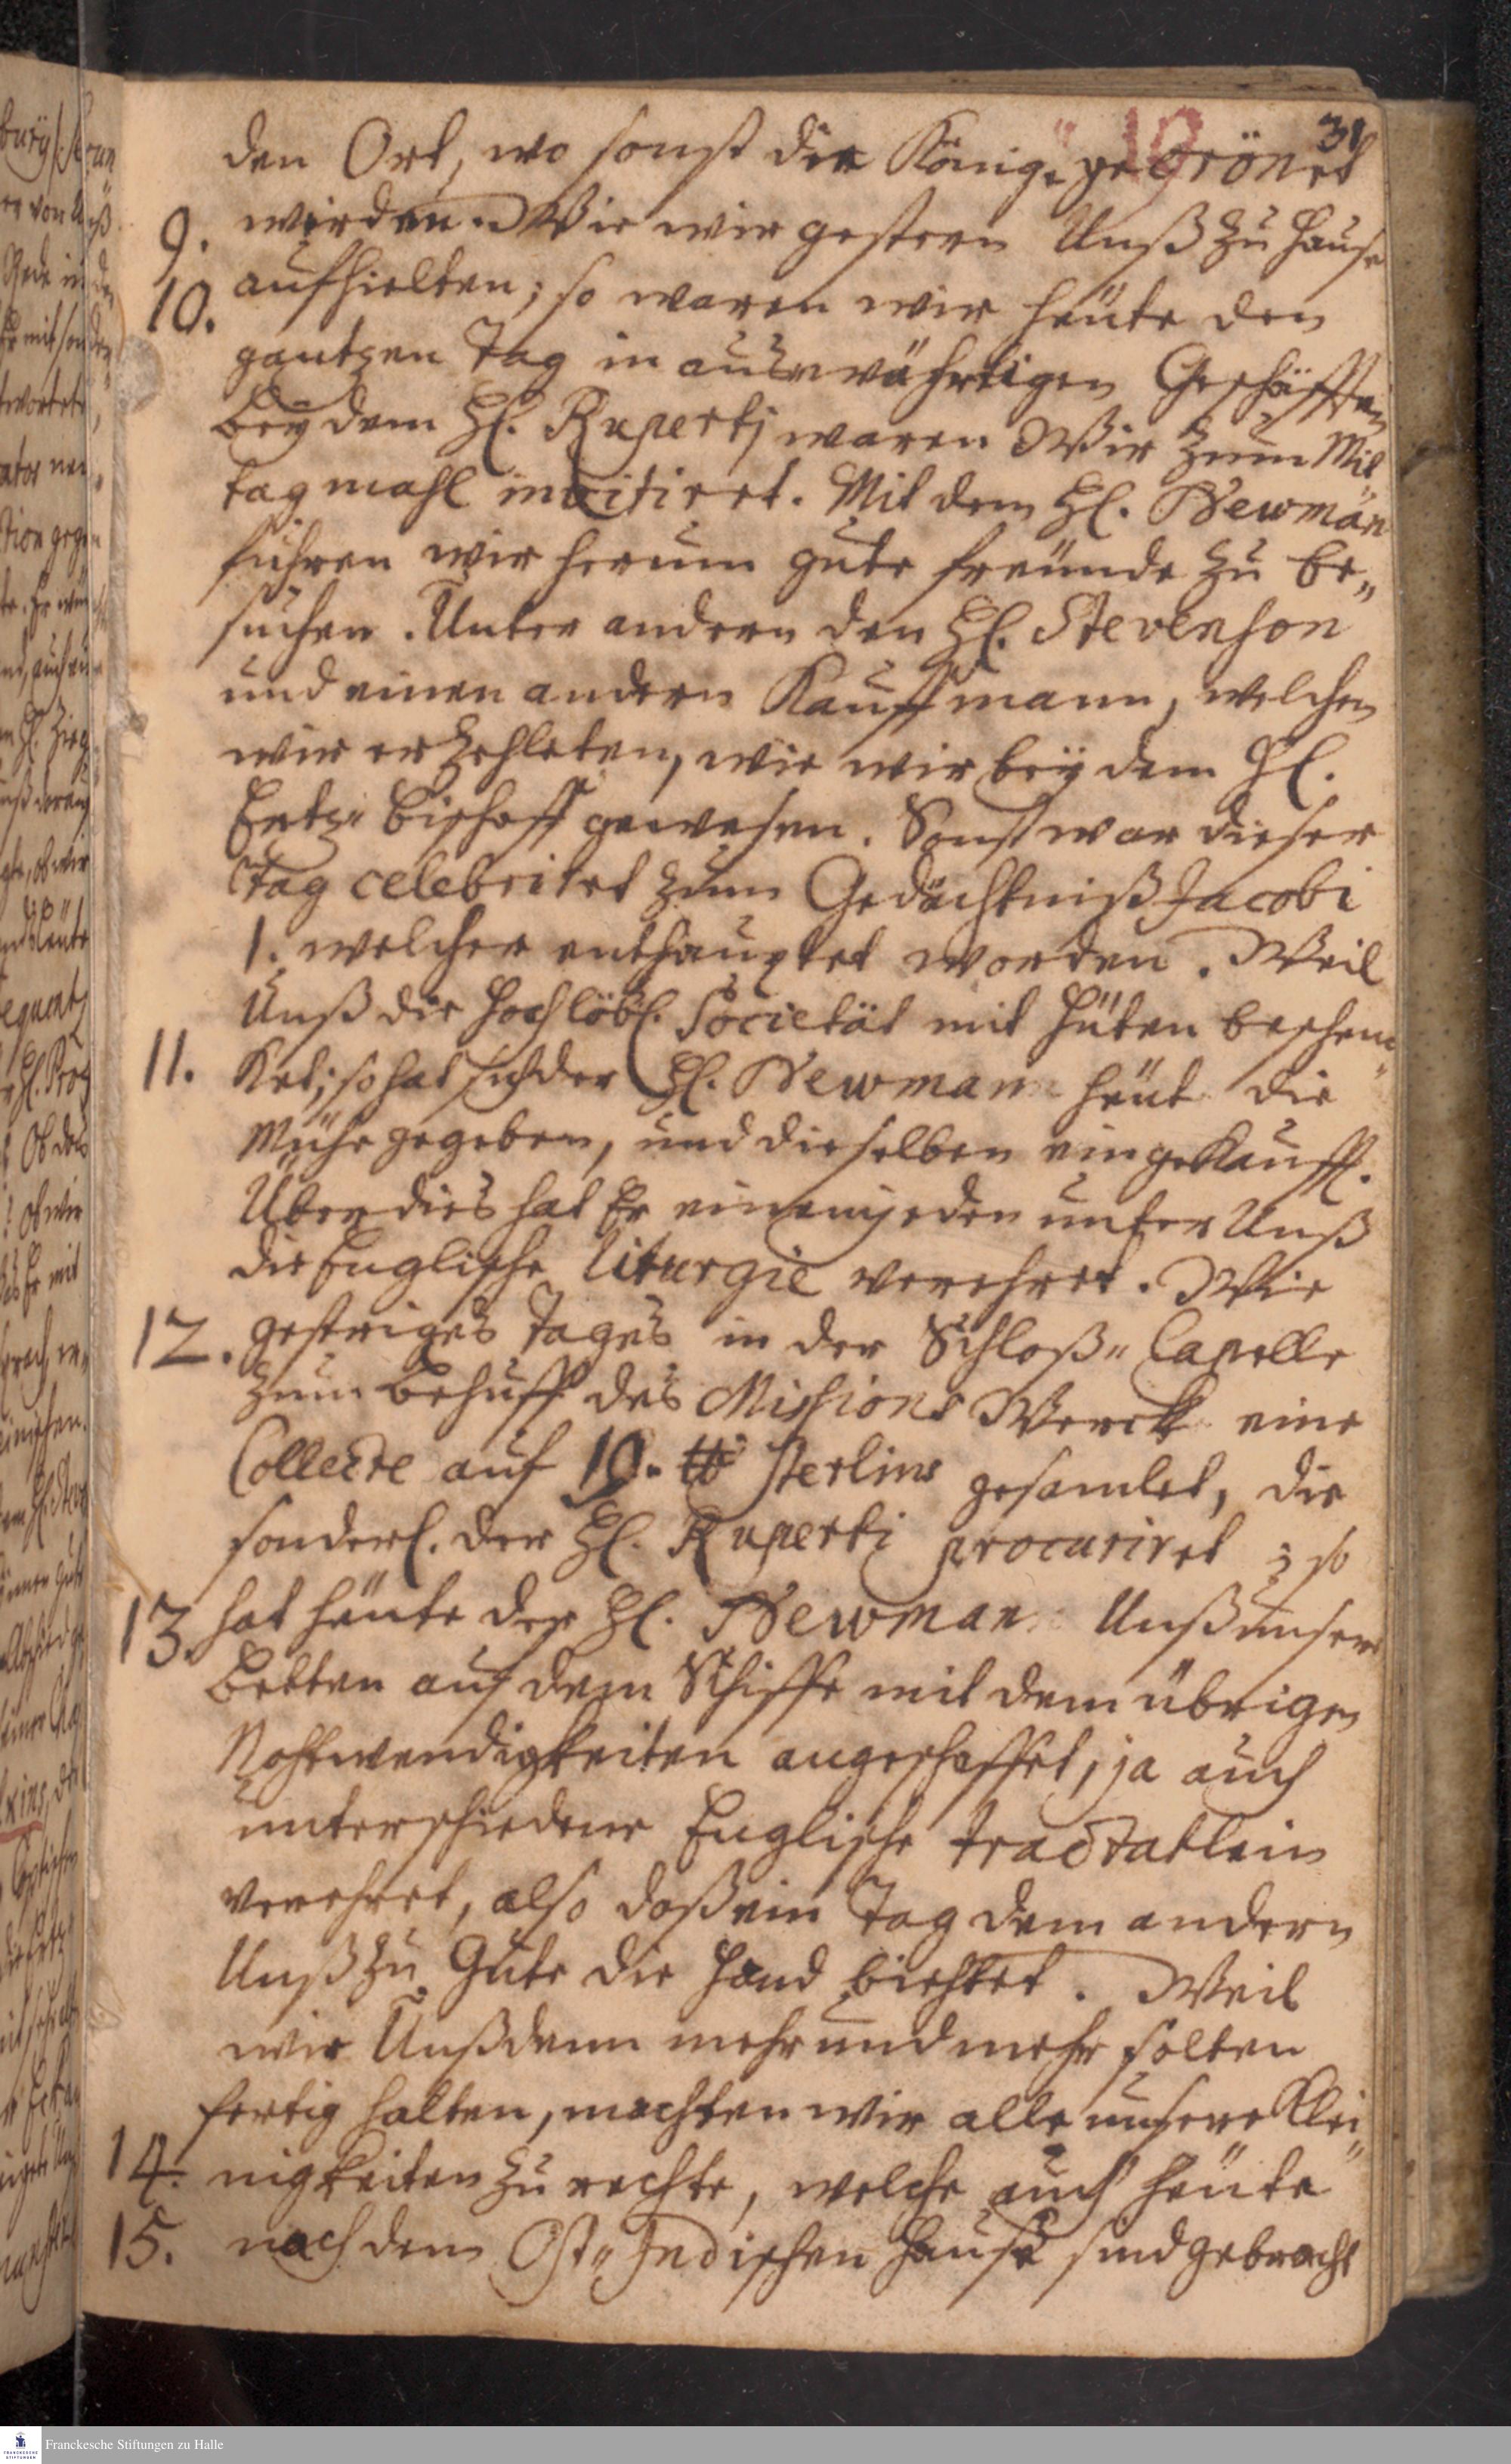 31
19
den Ort, wo sonst die Könige gecrönet
9. wirden. Wie wir gestern Unß zu Hause
10. aufhielten; so waren wir heüte den
gantzen Tag in auswährtigen Geschäfften
bey dem H. Ruperti waren Wir zum Mit
tagmahl invitiret. Mit dem H. Newman
fuhren wir herum gute freünde zu be„
suchen. Unter andern den H. Stevenson
und einen andern Kauffmann, welchen
wir erzehleten, wie wir bey dem H.
Ertz„ Bischoff gewesen. Sonst war dieser
Tag celebritet zum Gedächtniß Jacobi
1. welcher enthauptet worden. Weil
Unß die Hochlöbl. Societät mit Hüten beschen„
11. Ket; so hat sich der H. Newman heüt die
Mühe gegeben, und dieselben eingekaufft.
Über dies hat Er einem jeden unter Unß
die Englische Liturgie verehret. Wie
12. gestriges Tages in der Schloß„ Capelle
zum behuff des Missions Werck eine
Collecte auf 19. ℔ Sterlins gesamlet, die
sonderl. der H. Ruperti procuriret ; so
13. hat heüte der H. Newman Unß unsere
Betten auf dem Schiffe mit dem übrigen
Nohtwendigkeiten angeschaffet, ja auch
unterschiedene Englische tractatlein
verehret, also daß ein Tag dem andern
Unß zu Gute die Hand biehtet. Weil
wir Unß denn mehr und mehr solten
fertig halten, machten wir alle unsere Klei„
14. nigkeiten zu rechte, welche auch heüte
15. nach dem Ost„ Indischen Hause sind gebracht
Franckesche Stiftungen zu Halle